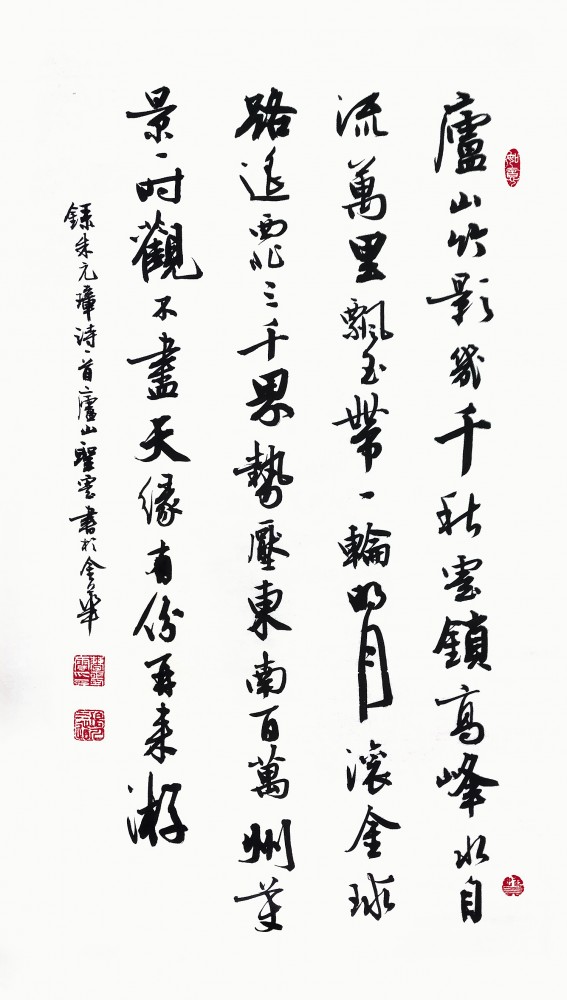 廬山竹影幾千秋雲鎖高峰水自
流萬里飄玉帶一輪明月滾金球
路遙西北三千界勢壓東南百萬州美
景一时觀不盡天緣有份再来游
錄朱元璋诗一首廬山聖雲書於金華